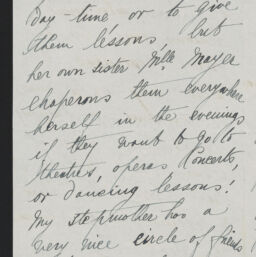 day-time or to give
them lessons, but
her own sister Mlle Mayer
chaperons them everywhere
herself in the evenings
if they want to go to
theatres, operas Concerts,
or dancing lessons!
My stepmother has a
very nice circle of friends